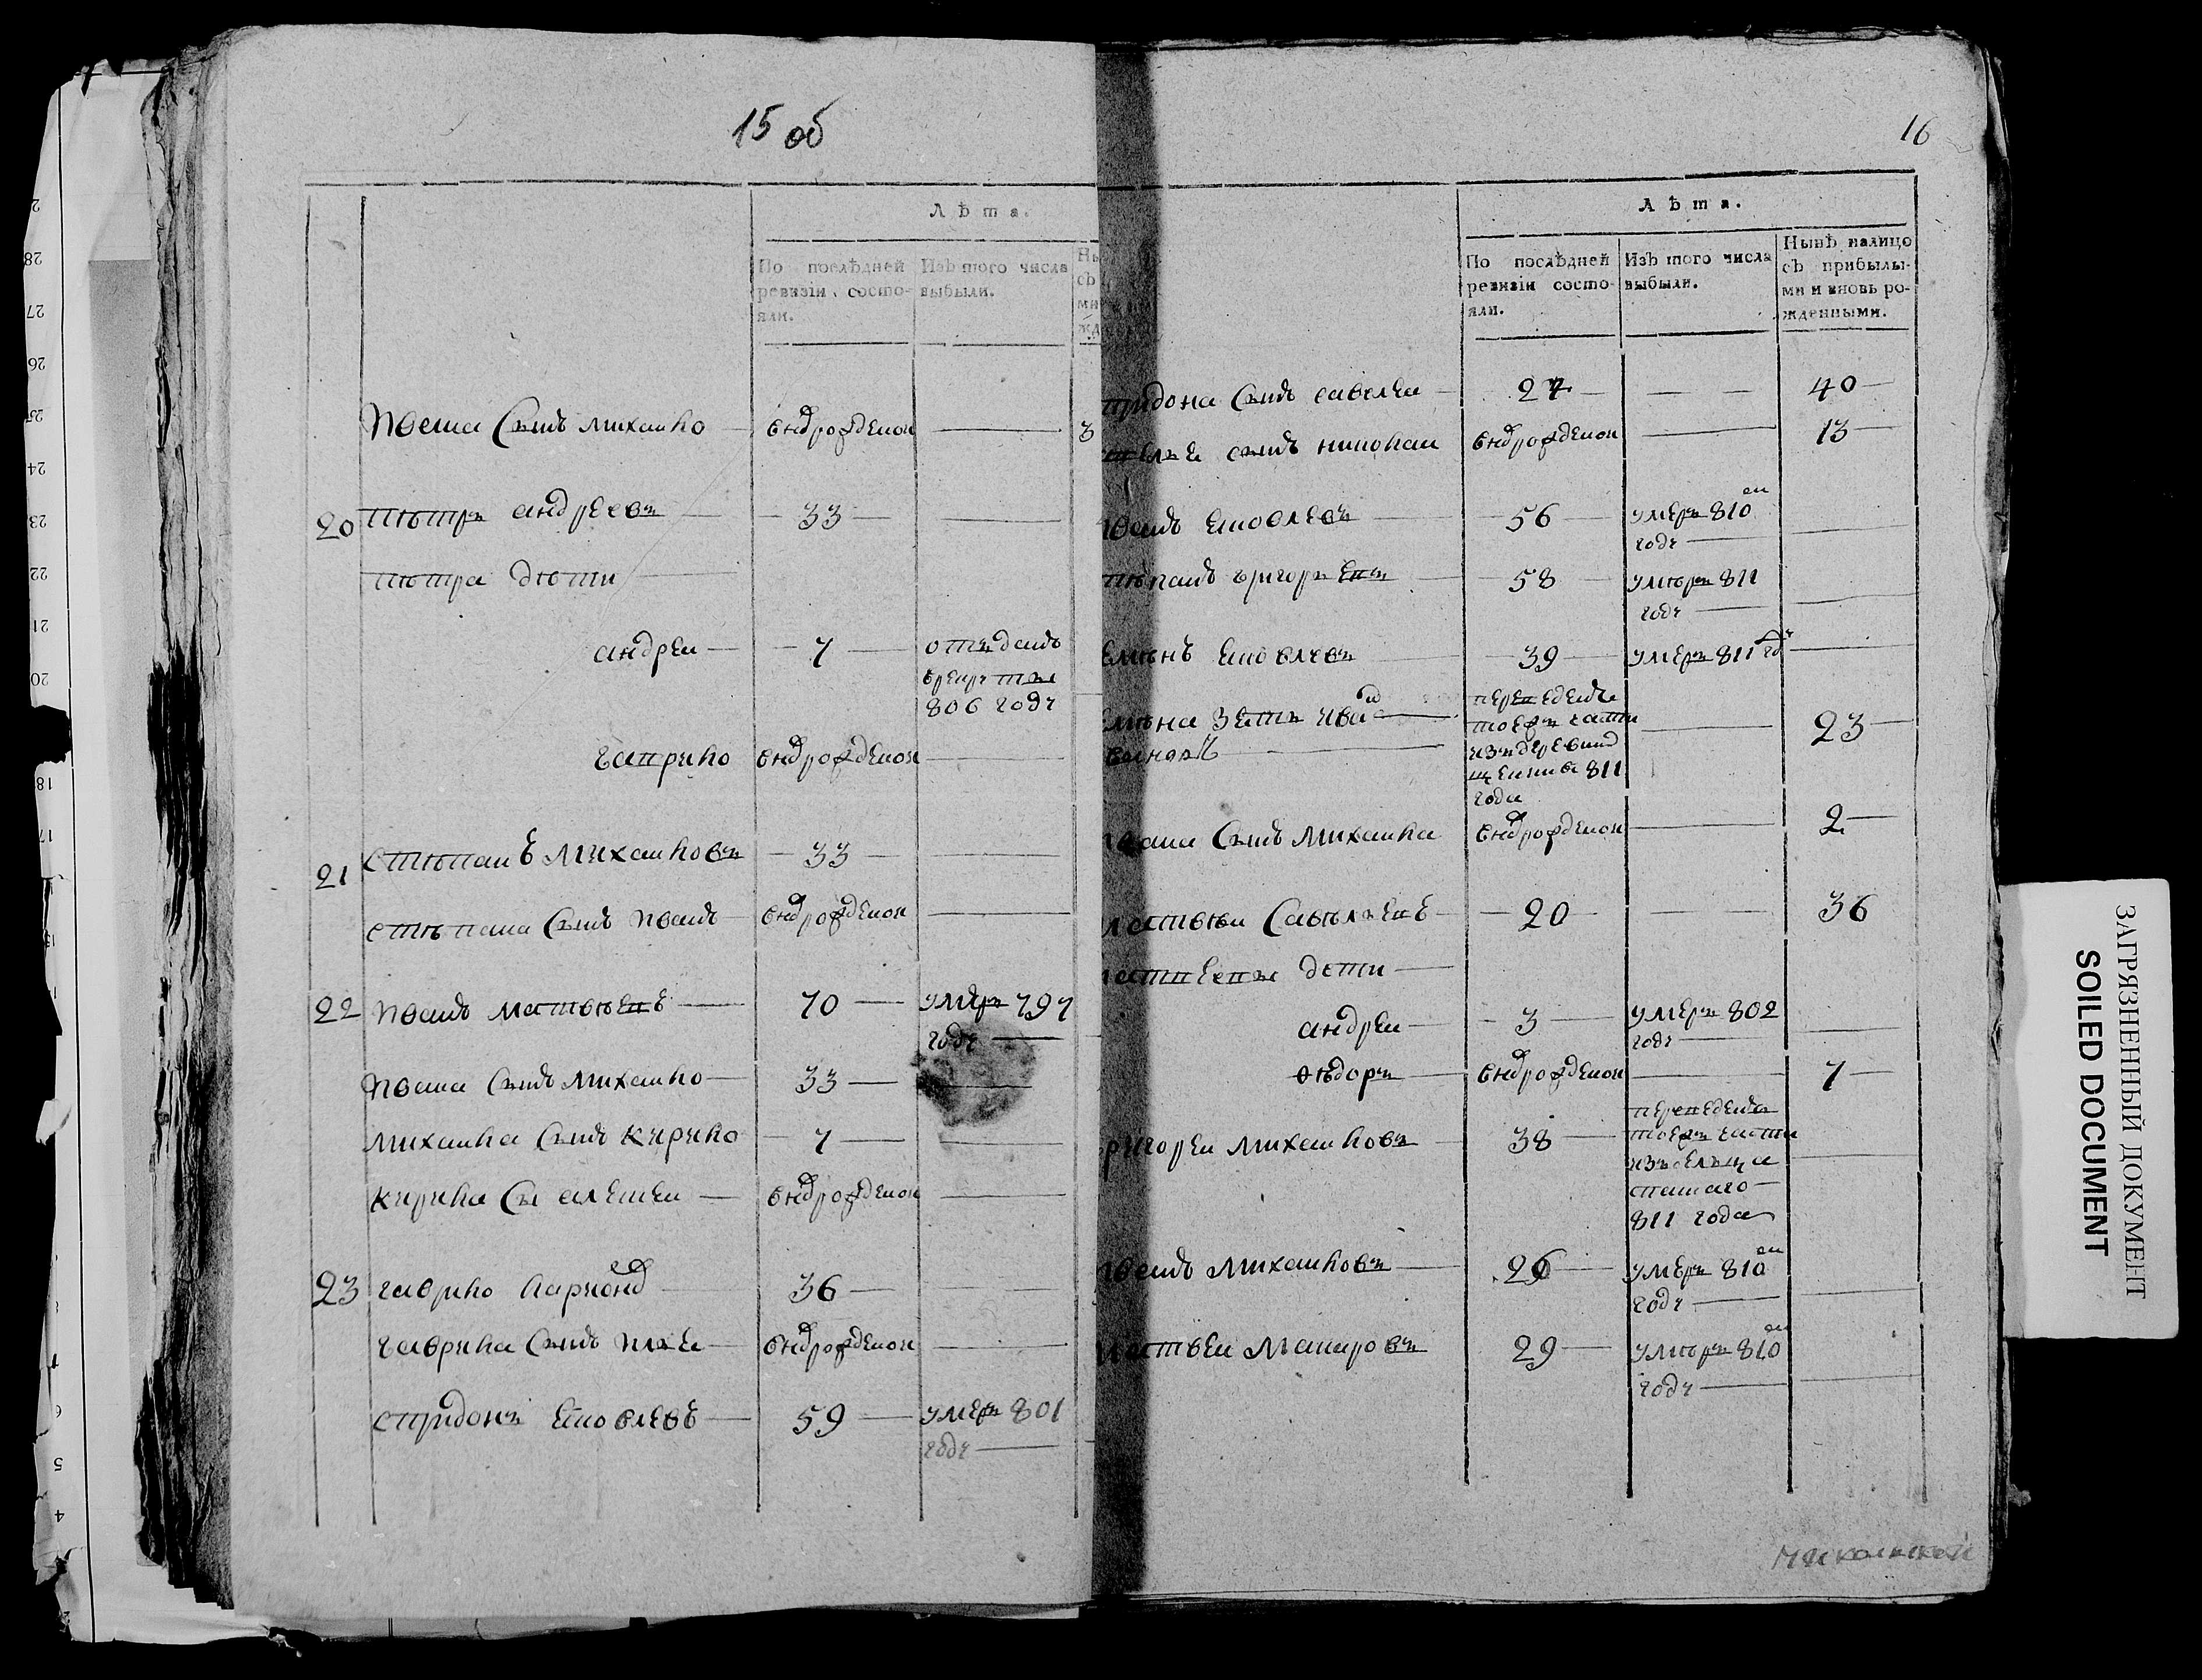 15 об
Лѣта.
По послѣдней
ревизіи состо-
яли.
Изъ того числа
выбыли.
Ивана сынъ михаило вновьрожденои 3
20 пѣтръ андреевъ 33
пѣтра дѣти
андреи 7 отъданъ
врекруты
806 году
гаврило вновьрожденои
21 стѣпанъ михаиловъ 33
стѣпана сынъ иванъ вновьрожденои
22 иванъ матвѣевъ 70 умеръ 797
году
ивана сынъ михаило 33
михаила сынъ кирило 7
кирила сы алексеи вновьрожденои
23 гаврило 36
гаврила сынъ илья вновьрожденои
спридонъ яковлевъ 59 умеръ 801
году
16
Лѣта.
По послѣдней
ревизіи состо-
яли.
Изъ того числа
выбыли.
Нынѣ налицо
съ прибылы-
ми и вновь ро-
жденными.
придона сынъ савелеи 27 40
сынъ николаи вновьрожденои 13
иванъ яковлевъ 56 умеръ 810
году
тѣпанъ григорьевъ 58 умѣръ 811
году
яковлевъ 39 умеръ 811 год
зять переведенъ
тоежъ части
издеревни
811
года
23
ивана сынъ михаила вновьрожденои 2
матвѣи савѣльевъ 20 36
матвеевы дети
андреи 3 умеръ 802
году
ѳѣдоръ вновьрожденои 7
ригореи михаиловъ 38 переведенъ
тоежъ части
изъсельца
811 года
иванъ михаиловъ 26 умеръ 810
году
матвеи макаровъ 29 умѣръ 810
году
ЗАГРЯЗНЕННЫЙ ДОКУМЕНТ
SOILED DOCUMENT